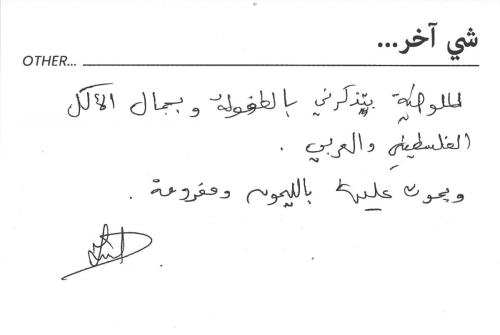 شي آخر...
OTHER...
الملوخية بتذكرني بالطفولة وبجمال الأكل
الفلسطيني والعربي .
وبموت عليها بالليمون ومفرومة .